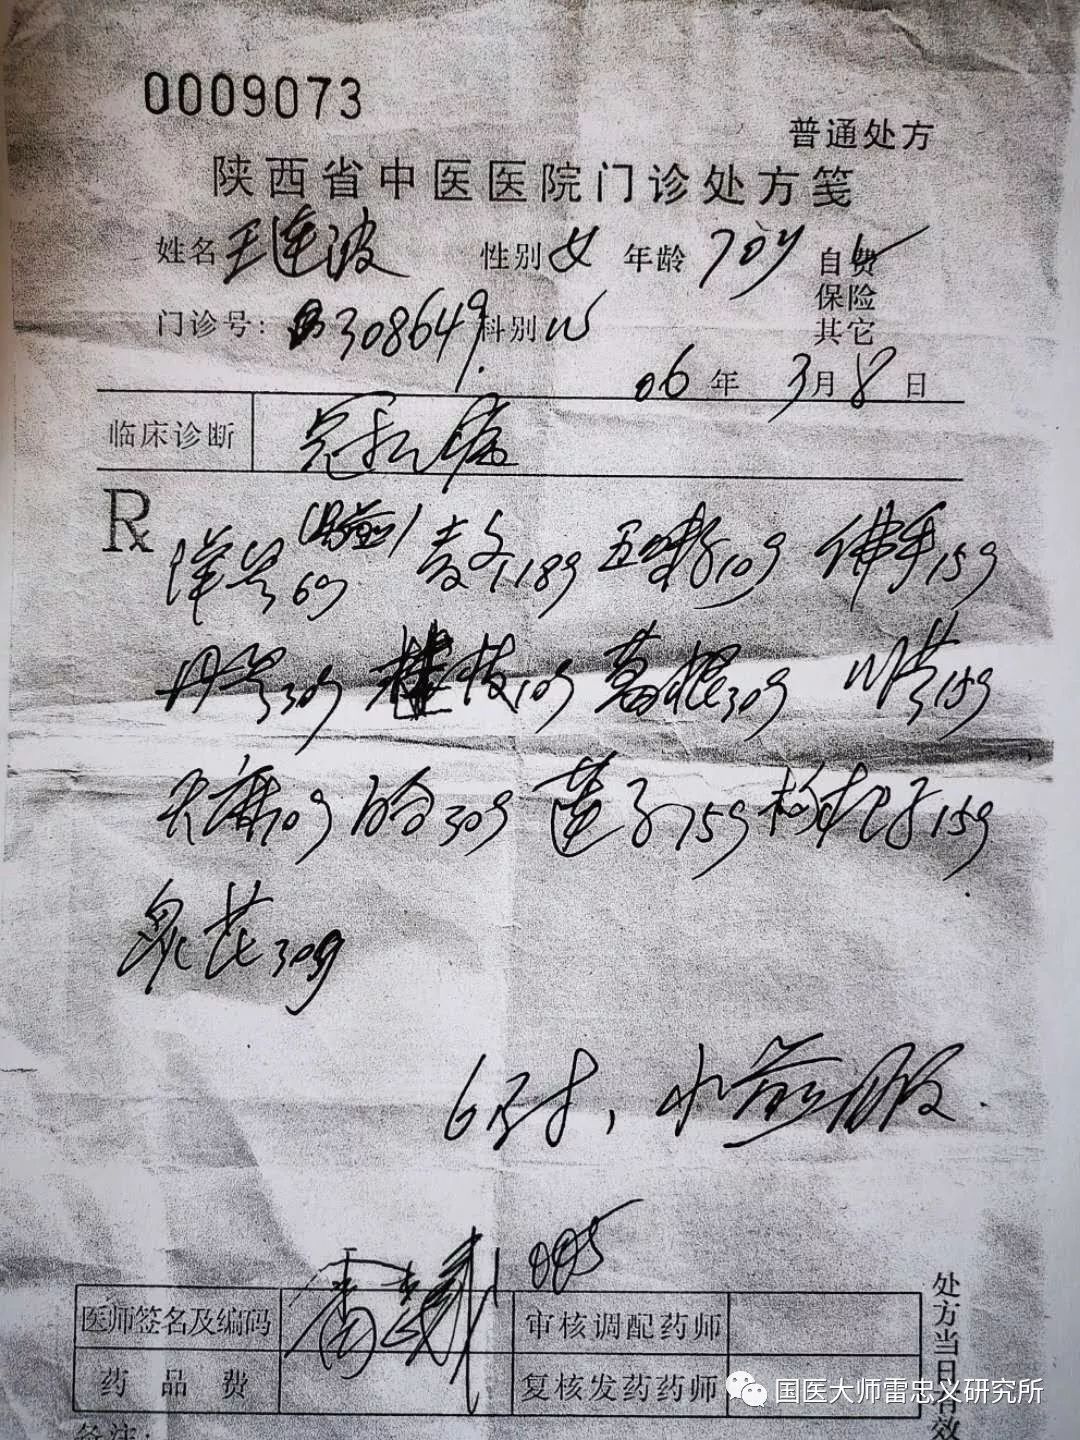 0009073
普通处方
陕西省中医医院门诊处方笺
姓名 王连波 性别 女 年龄 70岁 自费✓
保险
门诊号: 308649. 科别 内 其它
06年 3月 8日
临床诊断 冠心病
Rx
洋参6g 麦冬18g 五味子10g 佛手15g
丹参30g 桂枝10g 葛根30g 川芎15g
天麻10g 百合30g 莲子15g 枸杞子15g
炙芪30g
6付,水煎服.
005
医师签名及编码 雷忠义 审核调配药师
药品费 复核发药药师
备注:
处方当日有效
国医大师雷忠义研究所